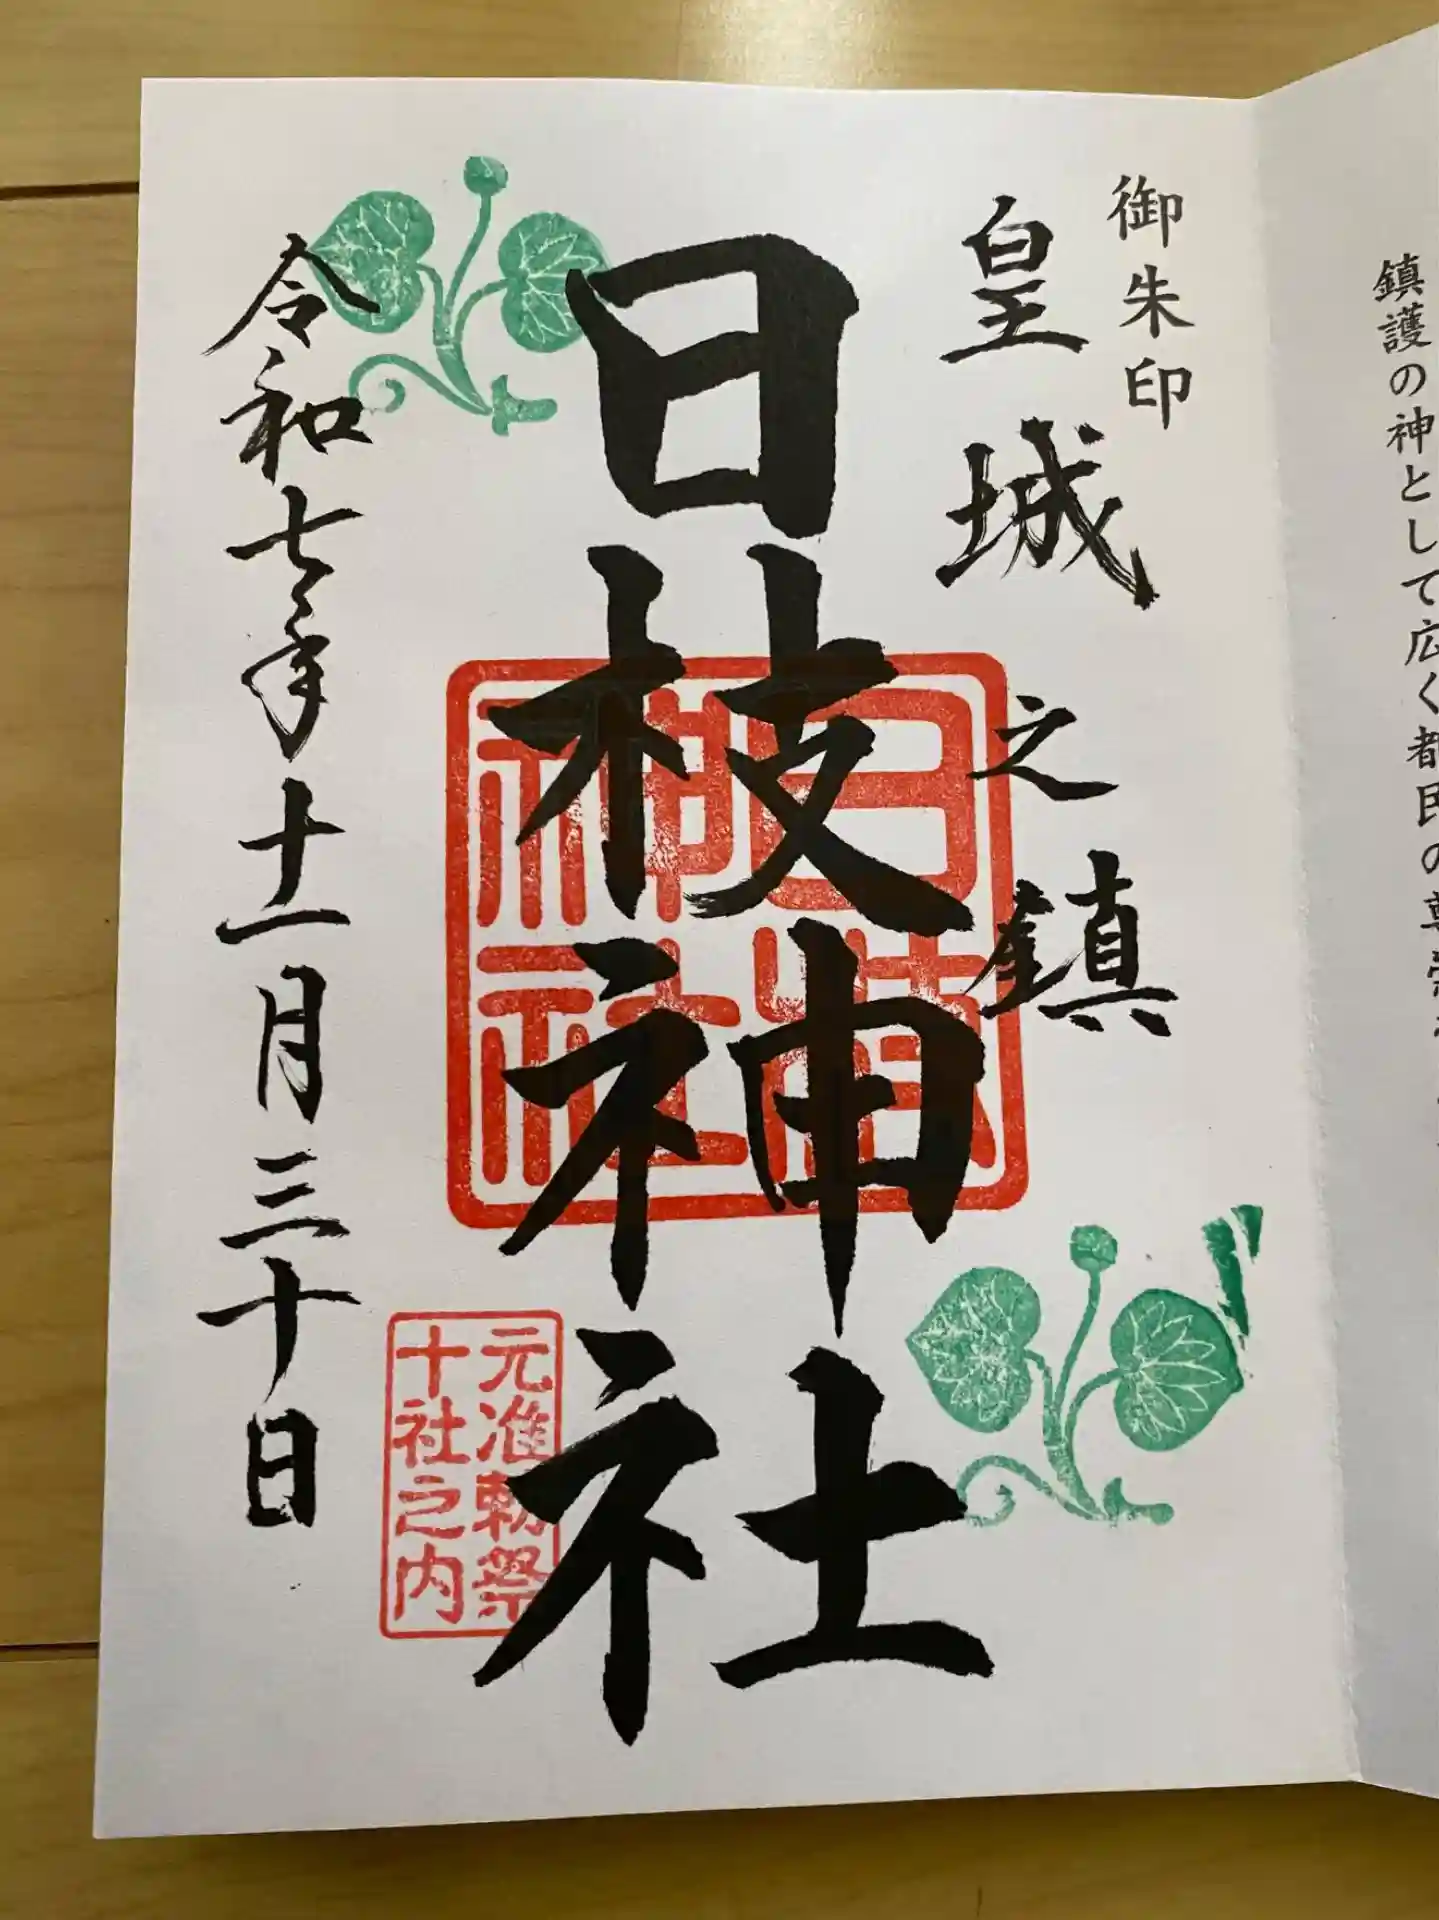 鎮護の神として広く都民の
御朱印
皇城之鎮
日枝神社
日枝神社
元准勅祭
十社之内
令和七年十一月三十日